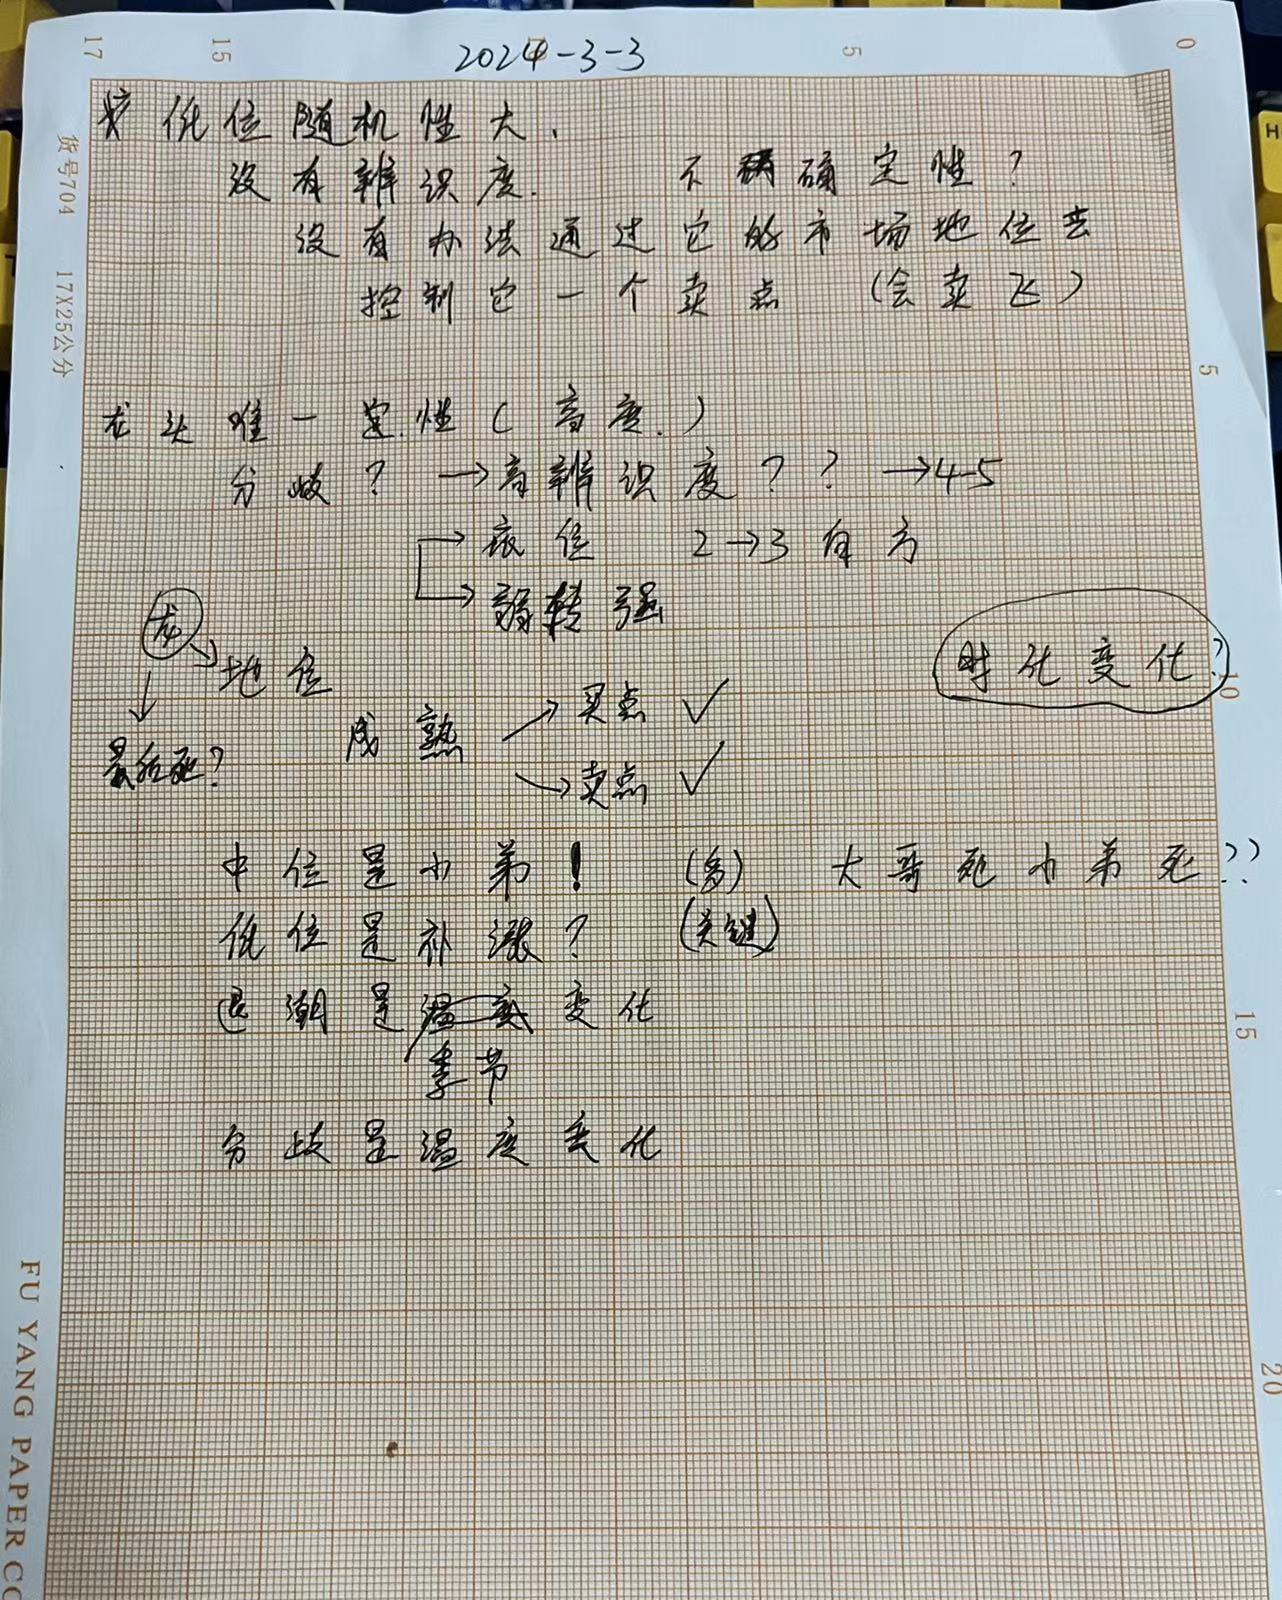 17 15 5 0
2024-3-3
低位随机性大.
没有辨识度. 不确定性?
没有办法通过它的市场地位去
控制它一个卖点 (会卖飞)
龙头唯一定性(高度.)
分歧? →高辨识度?? →4-5
→底位 2→3 有方
→弱转强
龙
→地位
时代变化?
成熟 →买点 ✓
最后死?
→卖点 ✓
中位是小弟! (多) 大哥死小弟死??
低位是补涨? (关键)
退潮是变化
季节
分歧是温度变化
5
10
15
20
货号704 17X25公分
FU YANG PAPER CO